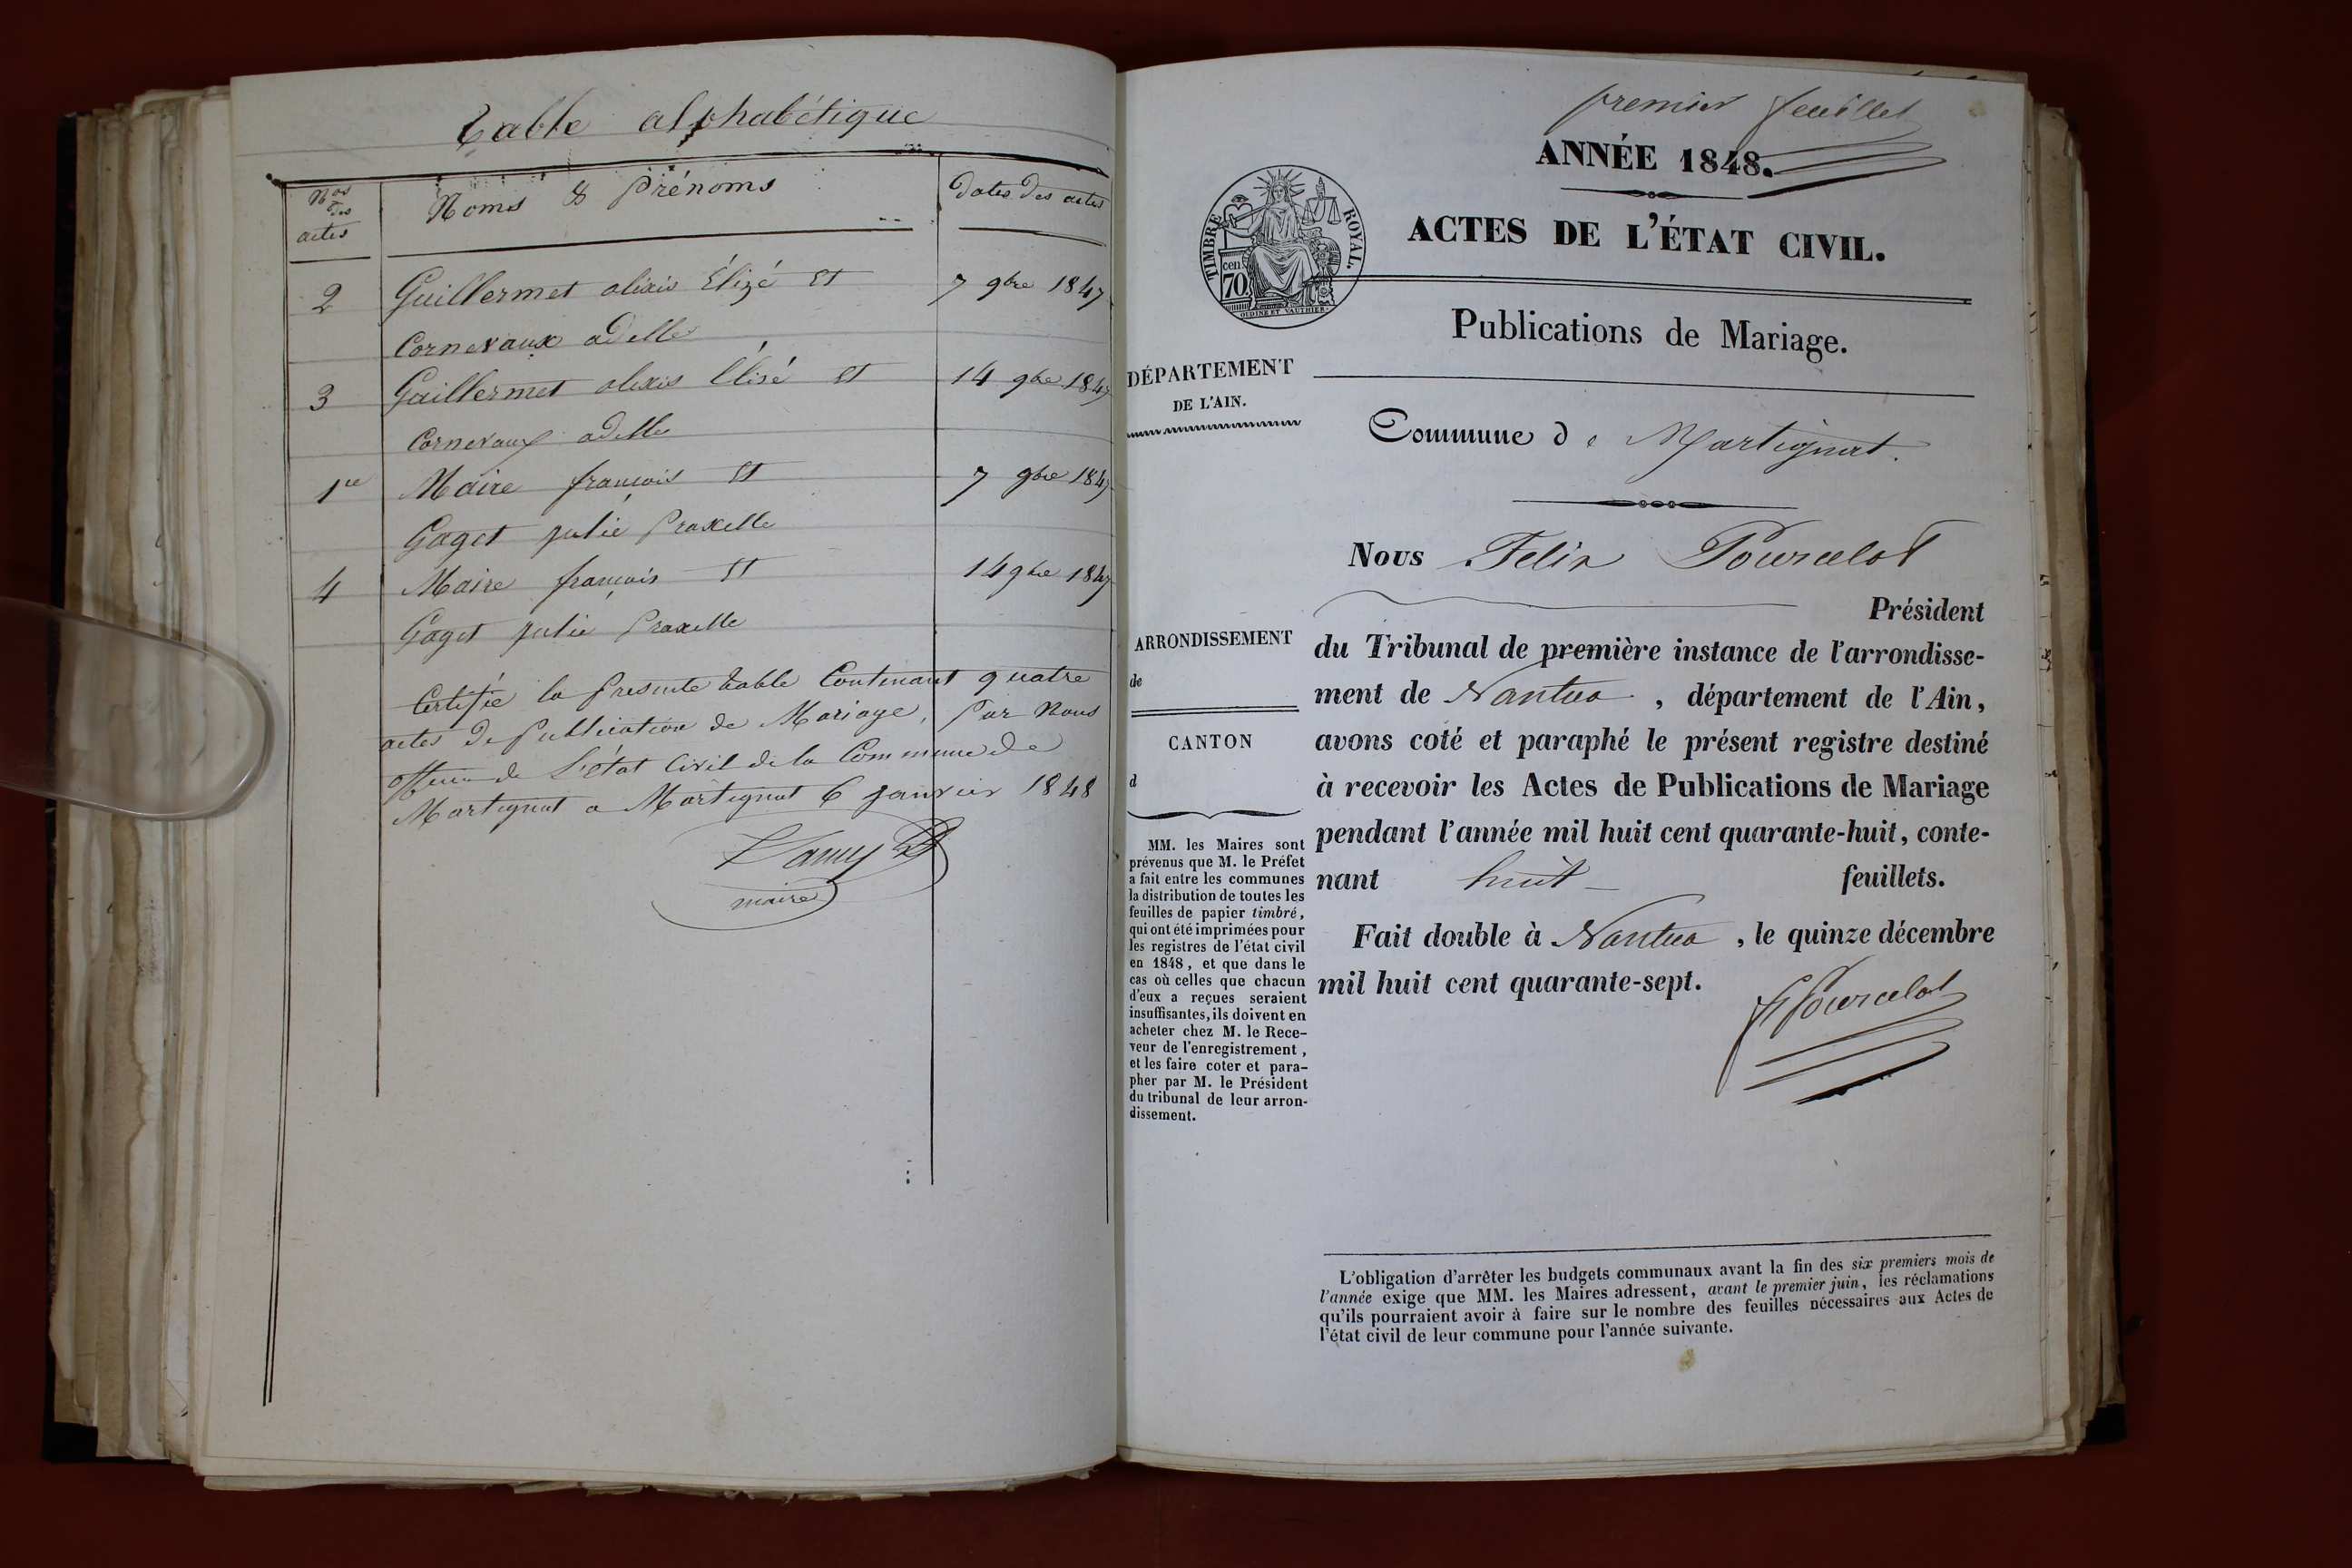 Table alphabétique
Nos des actes
Noms & Prénoms
Dates des actes
2 Guillermet alixis Élizé et 7 9bre 1847
Cornevaux adelle
3 Guillermet alexis Élisé et 14 9bre 1847
Cornevaux adelle
1re Maire françois et 7 9bre 1847
Gaget julie Praxelle
4 Maire françois et 14 9bre 1847
Gaget julie Praxelle
Certifié la presente table Contenant quatre
actes de Publication de Mariage, Par Nous
officier de L'état Civil de la Commune de
Martignat a Martignat 6 janvier 1848
maire
premier feuillet
ANNÉE 1848.
TIMBRE ROYAL.
cen. 70
OUDINÉ ET VAUTHIER.
ACTES DE L'ÉTAT CIVIL.
Publications de Mariage.
DÉPARTEMENT
DE L'AIN.
Commune de Martignat.
Nous Felix Pourcelot
Président
ARRONDISSEMENT
de
CANTON
d
du Tribunal de première instance de l'arrondisse-
ment de Nantua, département de l'Ain,
avons coté et paraphé le présent registre destiné
à recevoir les Actes de Publications de Mariage
pendant l'année mil huit cent quarante-huit, conte-
nant huit feuillets.
Fait double à Nantua, le quinze décembre
mil huit cent quarante-sept.
F Pourcelot
MM. les Maires sont
prévenus que M. le Préfet
a fait entre les communes
la distribution de toutes les
feuilles de papier timbré,
qui ont été imprimées pour
les registres de l'état civil
en 1848, et que dans le
cas où celles que chacun
d'eux a reçues seraient
insuffisantes, ils doivent en
acheter chez M. le Rece-
veur de l'enregistrement,
et les faire coter et para-
pher par M. le Président
du tribunal de leur arron-
dissement.
L'obligation d'arrêter les budgets communaux avant la fin des six premiers mois de
l'année exige que MM. les Maires adressent, avant le premier juin, les réclamations
qu'ils pourraient avoir à faire sur le nombre des feuilles nécessaires aux Actes de
l'état civil de leur commune pour l'année suivante.